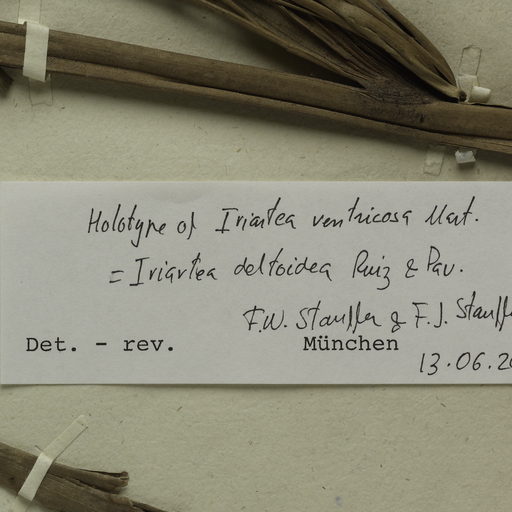 Holotype of Iriartea ventricosa Mart.
= Iriartea deltoidea Ruiz & Pav.
F.W. Stauffer & F.J. Stauffe
Det. - rev. München
13.06.20